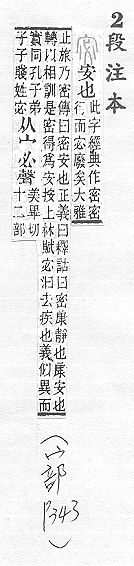 2段注本
宓 安也
此字經典作密密
行而宓廢矣大雅
止旅乃密傳曰密安也正義曰釋詁曰密康靜也康安也
轉以相訓是密得爲安按上林賦宓汩去疾也義似異而
實同孔子弟
子子賤姓宓
从宀必聲
美畢切
十二部
(宀部
P343)